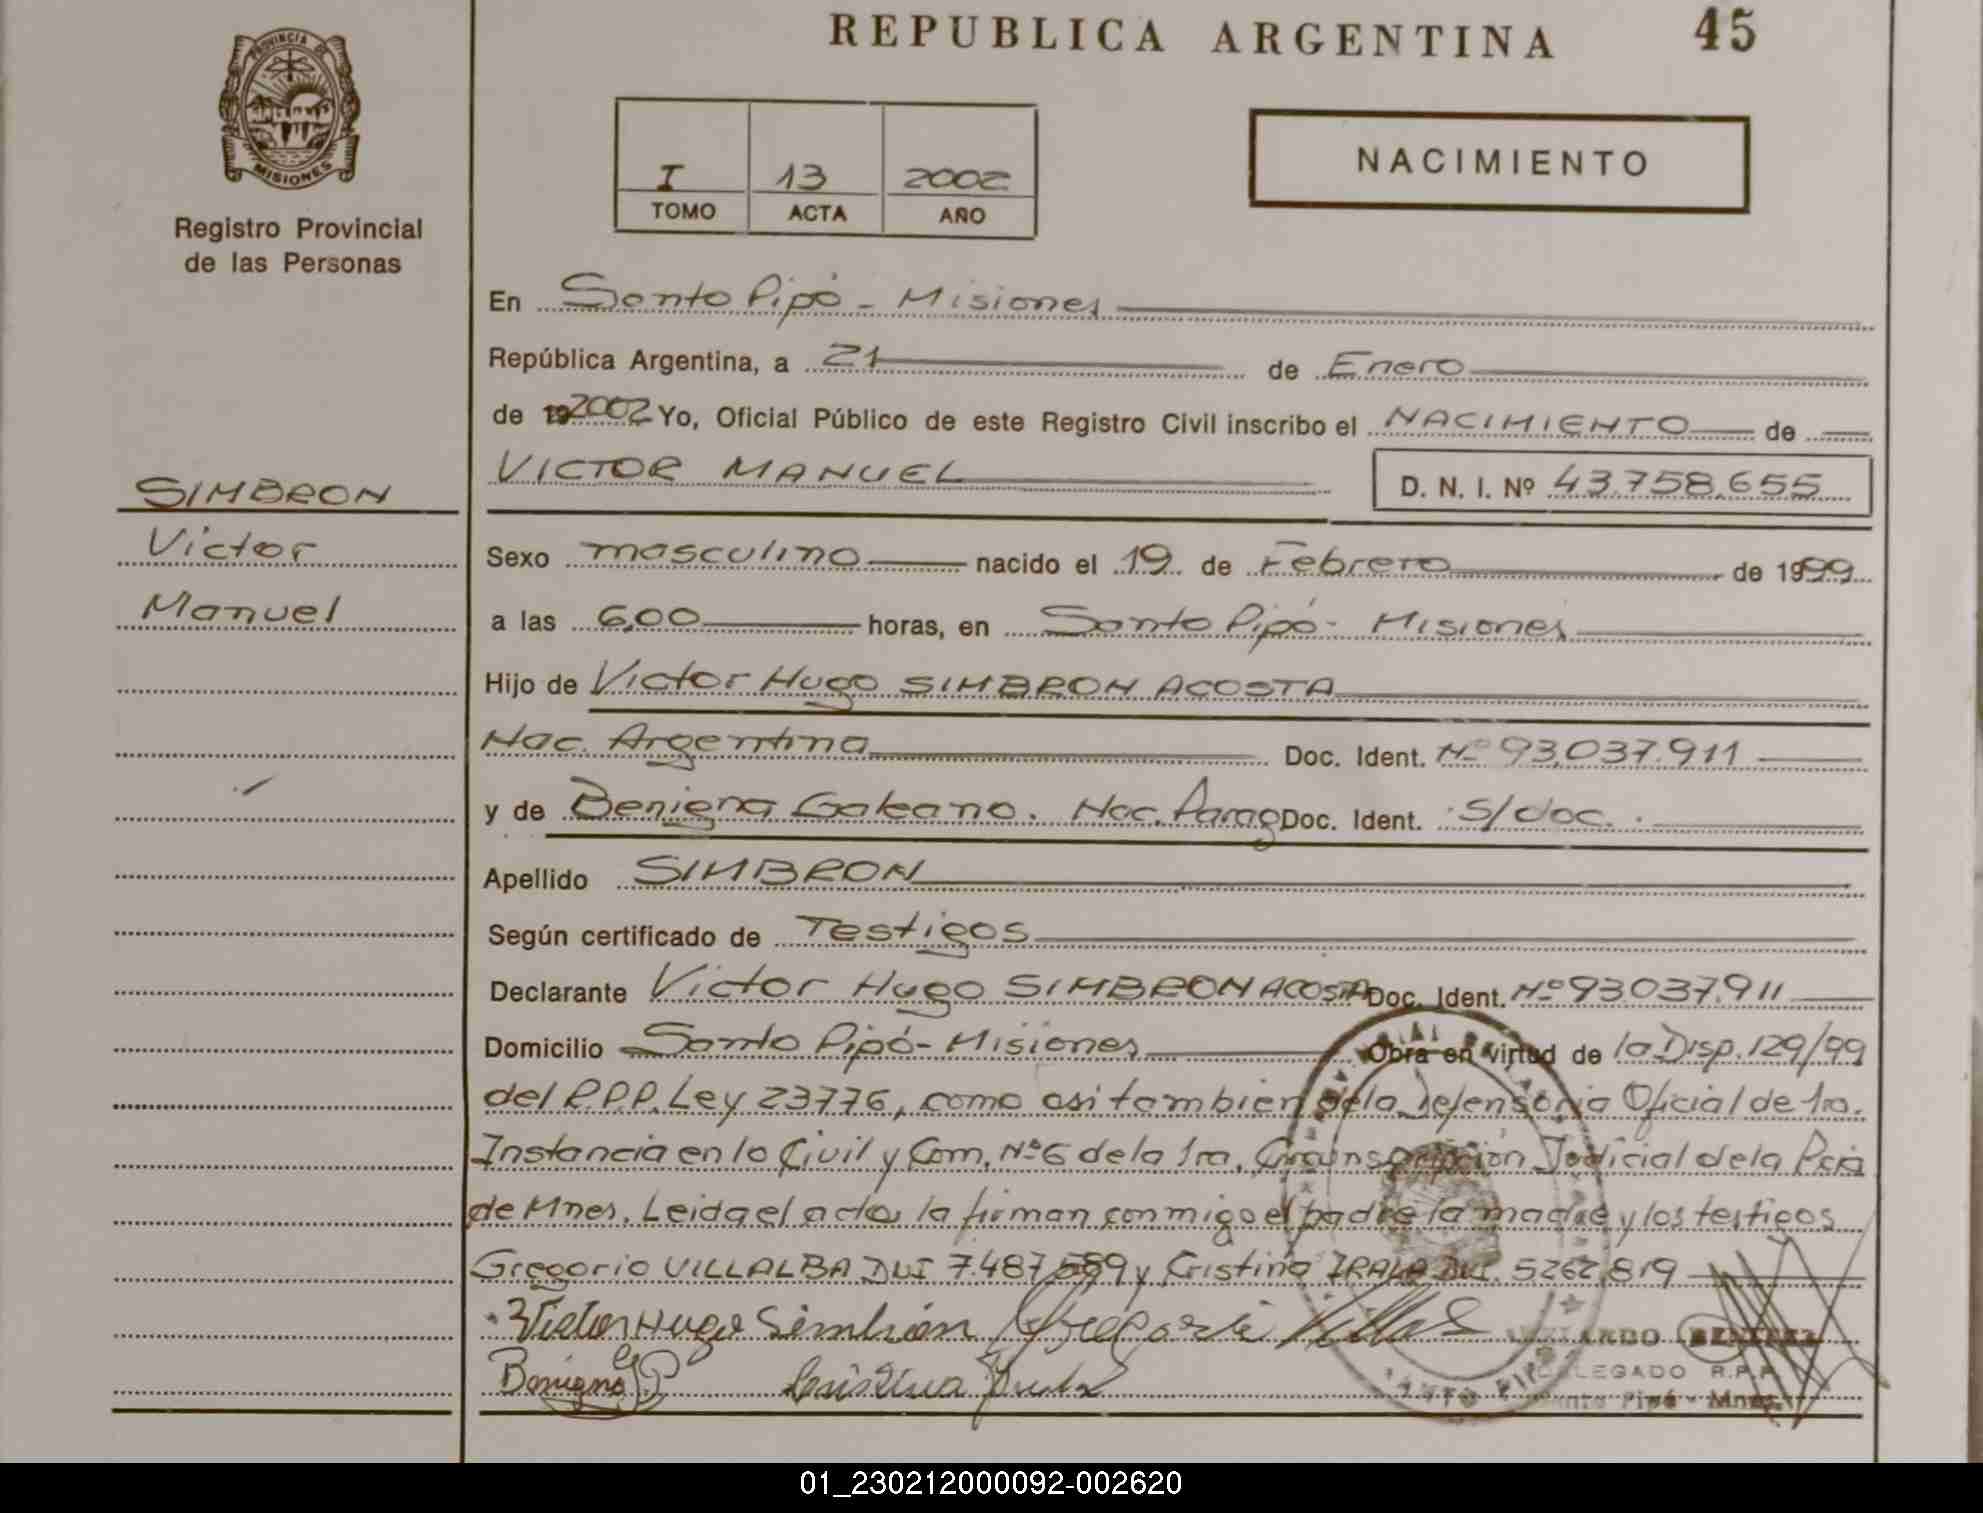 REPUBLICA ARGENTINA 45
PROVINCIA DE
MISIONES
Registro Provincial
de las Personas
I 13 2002
TOMO ACTA AÑO
NACIMIENTO
SIMBRON
Victor
Manuel
En Santo Pipó - Misiones
República Argentina, a 21 de Enero
de 19 2002 Yo, Oficial Público de este Registro Civil inscribo el NACIMIENTO de
VICTOR MANUEL D. N. I. Nº 43.758.655
Sexo masculino nacido el 19 de Febrero de 1999
a las 6,00 horas, en Santo Pipó - Misiones
Hijo de Victor Hugo SIMBRON ACOSTA
Nac. Argentina Doc. Ident. Nº 93.037.911
y de Benigna Galeano. Nac. Parag Doc. Ident. S/doc.
Apellido SIMBRON
Según certificado de Testigos
Declarante Victor Hugo SIMBRON ACOSTA Doc. Ident. Nº 93.037.911
Domicilio Santo Pipó - Misiones Obra en virtud de la Disp. 129/99
del R.P.P. Ley 23776, como asi tambien dela Defensoria Oficial de 1ra.
Instancia en lo Civil y Com. Nº 6 de la 1ra. Circunscripcion Judicial de la Pcia
de Mnes. Leida el acta la firman conmigo el padre la madre y los testigos
Gregorio VILLALBA DNI 7.487.559 y Cristina IRALA DNI. 5262.819
Victor Hugo Simbron Gregorio
BENITEZ
Benigna G Cristina
DELEGADO R.P.P.
Santo Pipó - Mnes.
SANTO PIPO
01_230212000092-002620